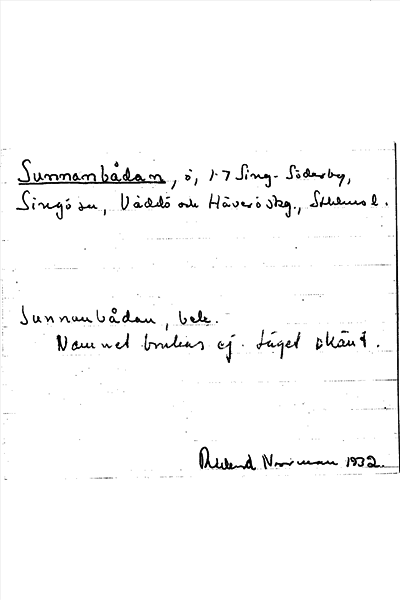 Sunnanbådan, ö, 1-7 Sing-Söderby,
Singö sn, Väddö och Häverö skg., Sthlms l.
Sunnanbådan, bek.
Namnet brukas ej. Läget okänt.
Norrman 1932.